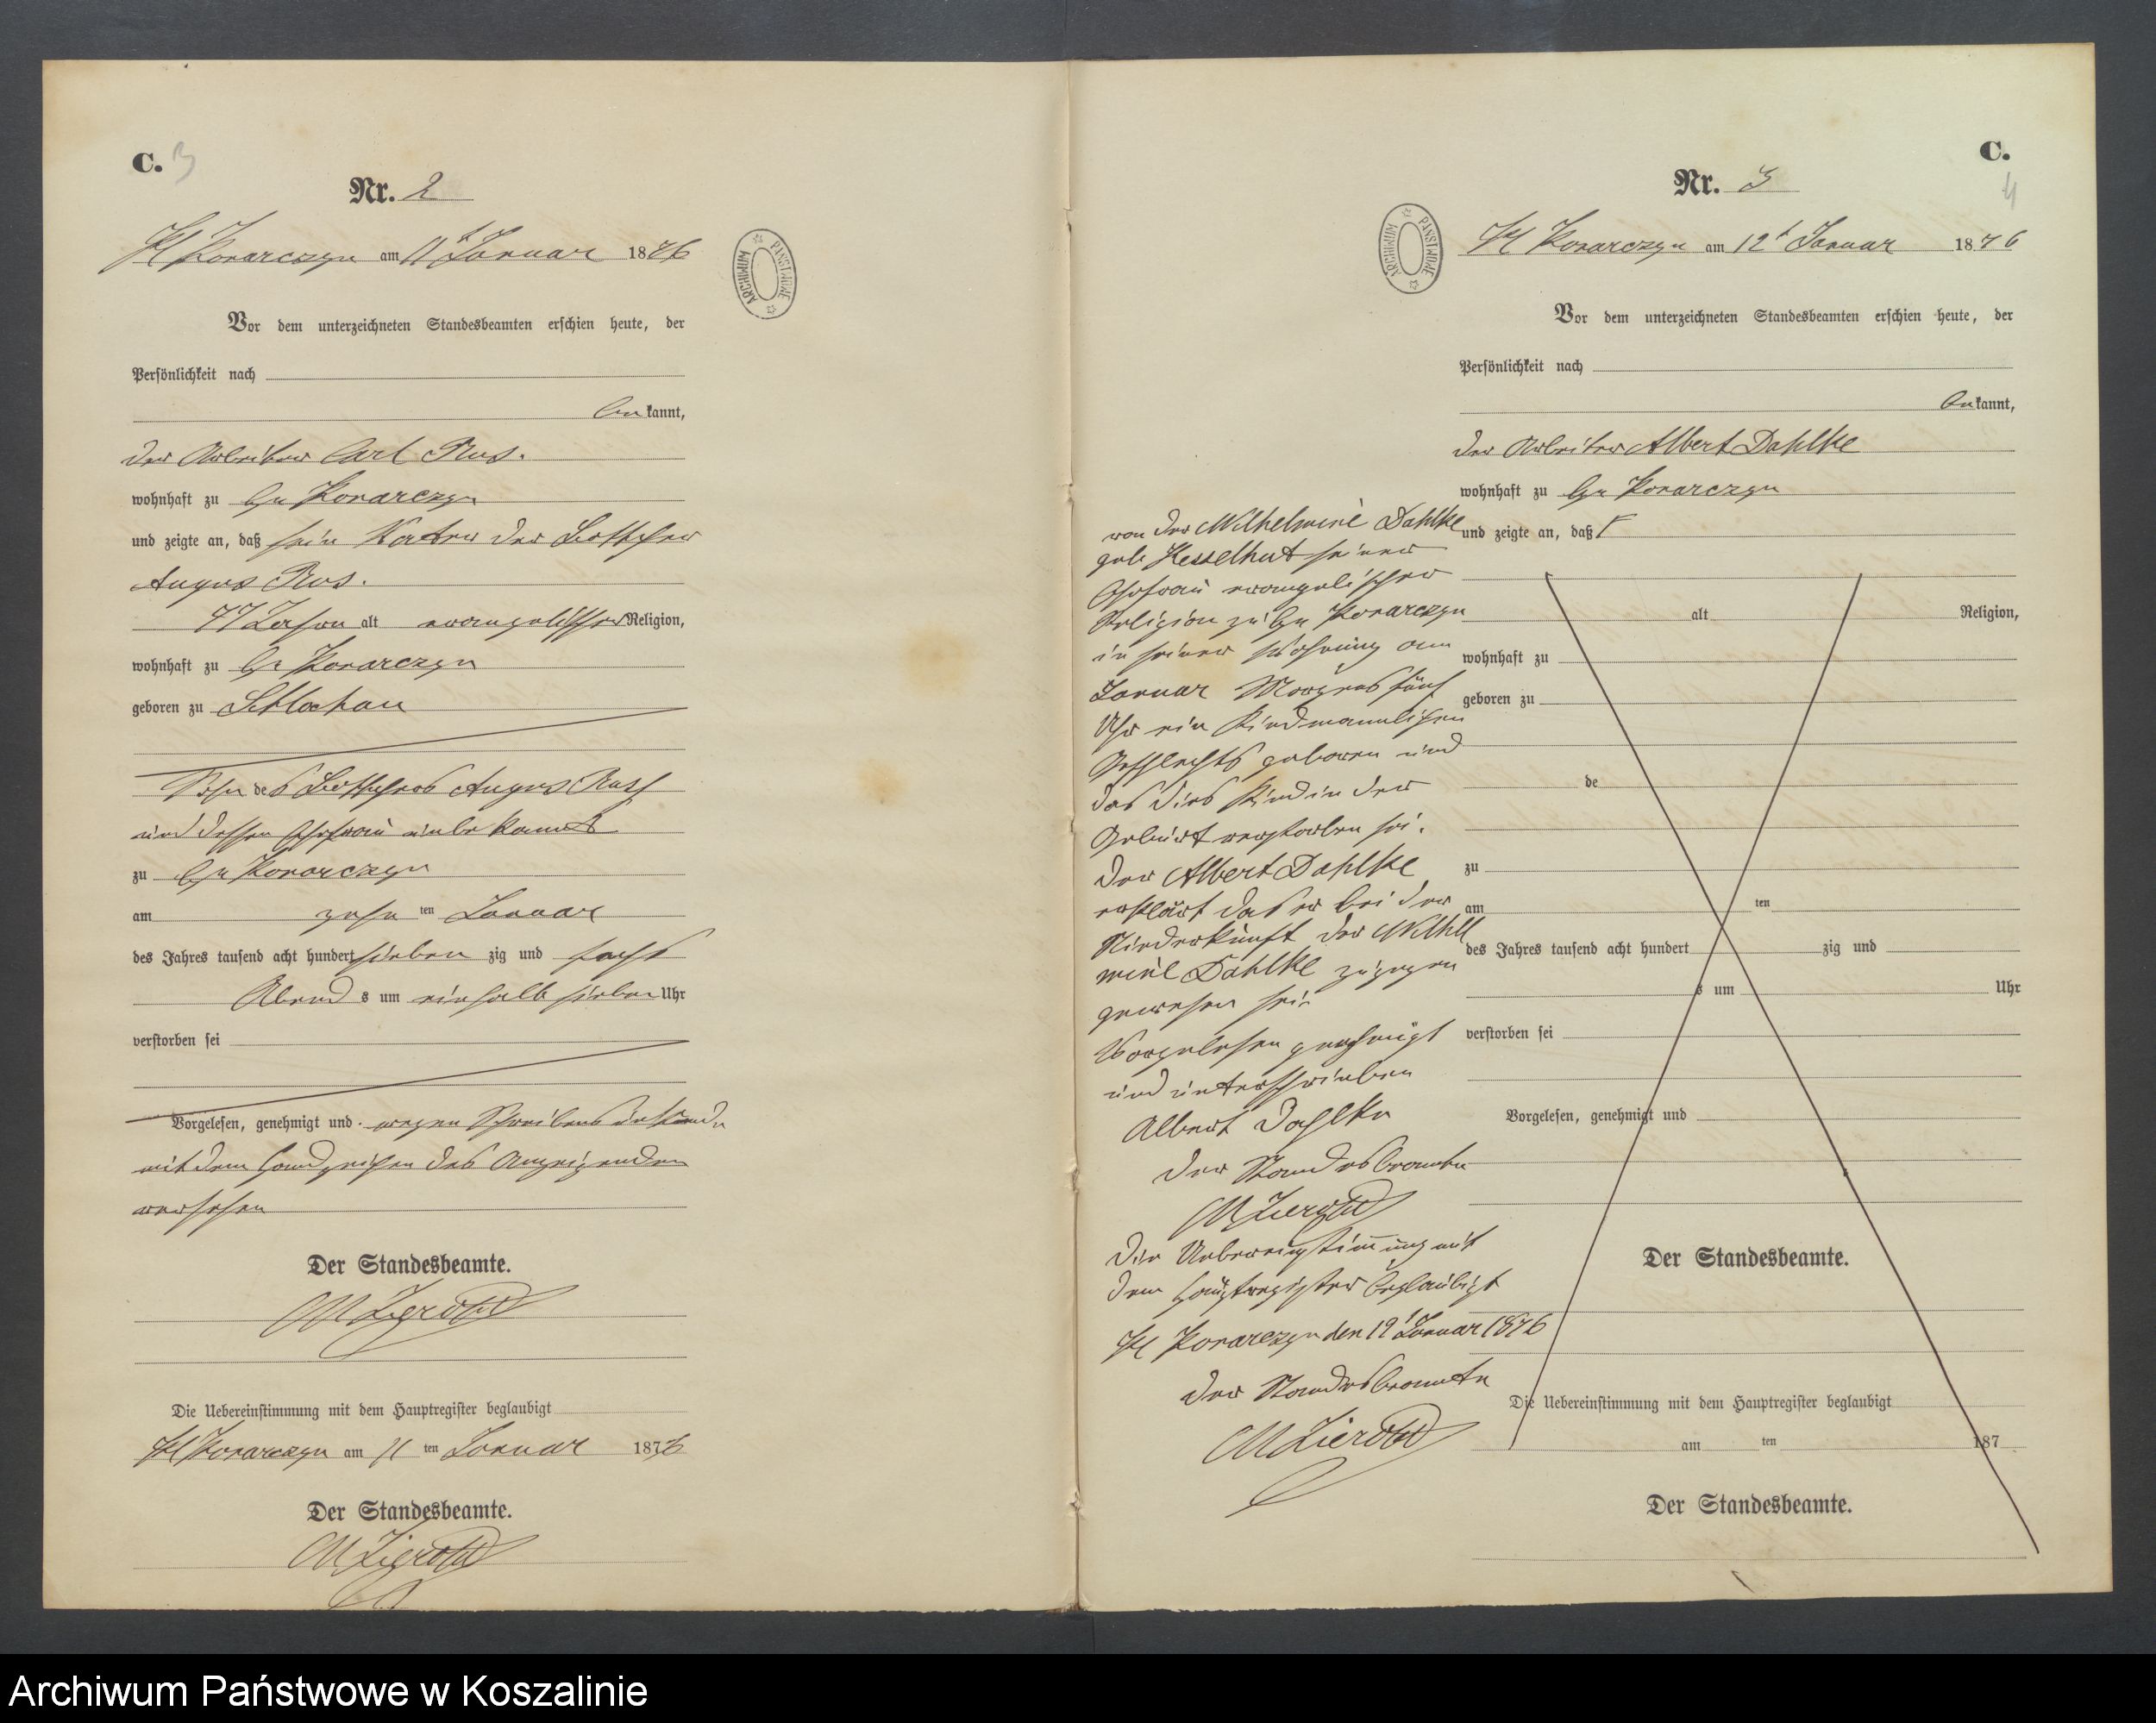 C. 3
Nr. 2
Kl Konarczyn am 11t Januar 1876
Vor dem unterzeichneten Standesbeamten erschien heute, der
Persönlichkeit nach
bekannt,
der Arbeiter Carl Rus.
wohnhaft zu Gr Konarczyn
und zeigte an, daß sein Vater der Böttcher
August Rus.
77 Jahre alt evangelischer Religion,
wohnhaft zu Gr Konarczyn
geboren zu Schlochau
Sohn des Böttchers August
und dessen Ehefrau unbekannt
zu Gr Konarczyn
am zehn ten Januar
des Jahres tausend acht hundert sieben zig und sechs
Abend s um einhalb sieben Uhr
verstorben sei
Vorgelesen, genehmigt und wegen Schreibens
mit dem Handzeichen des Anzeigenden
versehen
Der Standesbeamte.
Die Uebereinstimmung mit dem Hauptregister beglaubigt
Kl Konarczyn am 11 ten Januar 1876
Der Standesbeamte.
ARCHIWUM PAŃSTWOWE
C.
4
Nr. 3
ARCHIWUM PAŃSTWOWE
Kl Konarczyn am 12t Januar 1876
Vor dem unterzeichneten Standesbeamten erschien heute, der
Persönlichkeit nach
bekannt,
der Arbeiter Albert Dahlke
wohnhaft zu Gr Konarczyn
und zeigte an, daß
von der Wilhelmine Dahlke
geb Hesselhut seiner
Ehefrau evangelischer
Religion zu Gr Konarczyn
in seiner Wohnung am
Januar Morgens fünf
Uhr ein Kind männlichen
Geschlechts geboren und
das dies Kind in der
Geburt verstorben sei.
der Albert Dahlke
erklärt das er bei der
Niederkunft der Wilhel
mine Dahlke zugegen
gewesen sei
Vorgelesen genehmigt
und unterschrieben
Albert Dahlke
der Standesbeamte
Die Uebereinstimmung mit
dem Hauptregister beglaubigt
Kl Konarczyn den 12t Januar 1876
der Standesbeamte
alt Religion,
wohnhaft zu
geboren zu
de
zu
am ten
des Jahres tausend acht hundert zig und
s um Uhr
verstorben sei
Vorgelesen, genehmigt und
Der Standesbeamte.
Die Uebereinstimmung mit dem Hauptregister beglaubigt
am ten 187
Der Standesbeamte.
Archiwum Państwowe w Koszalinie